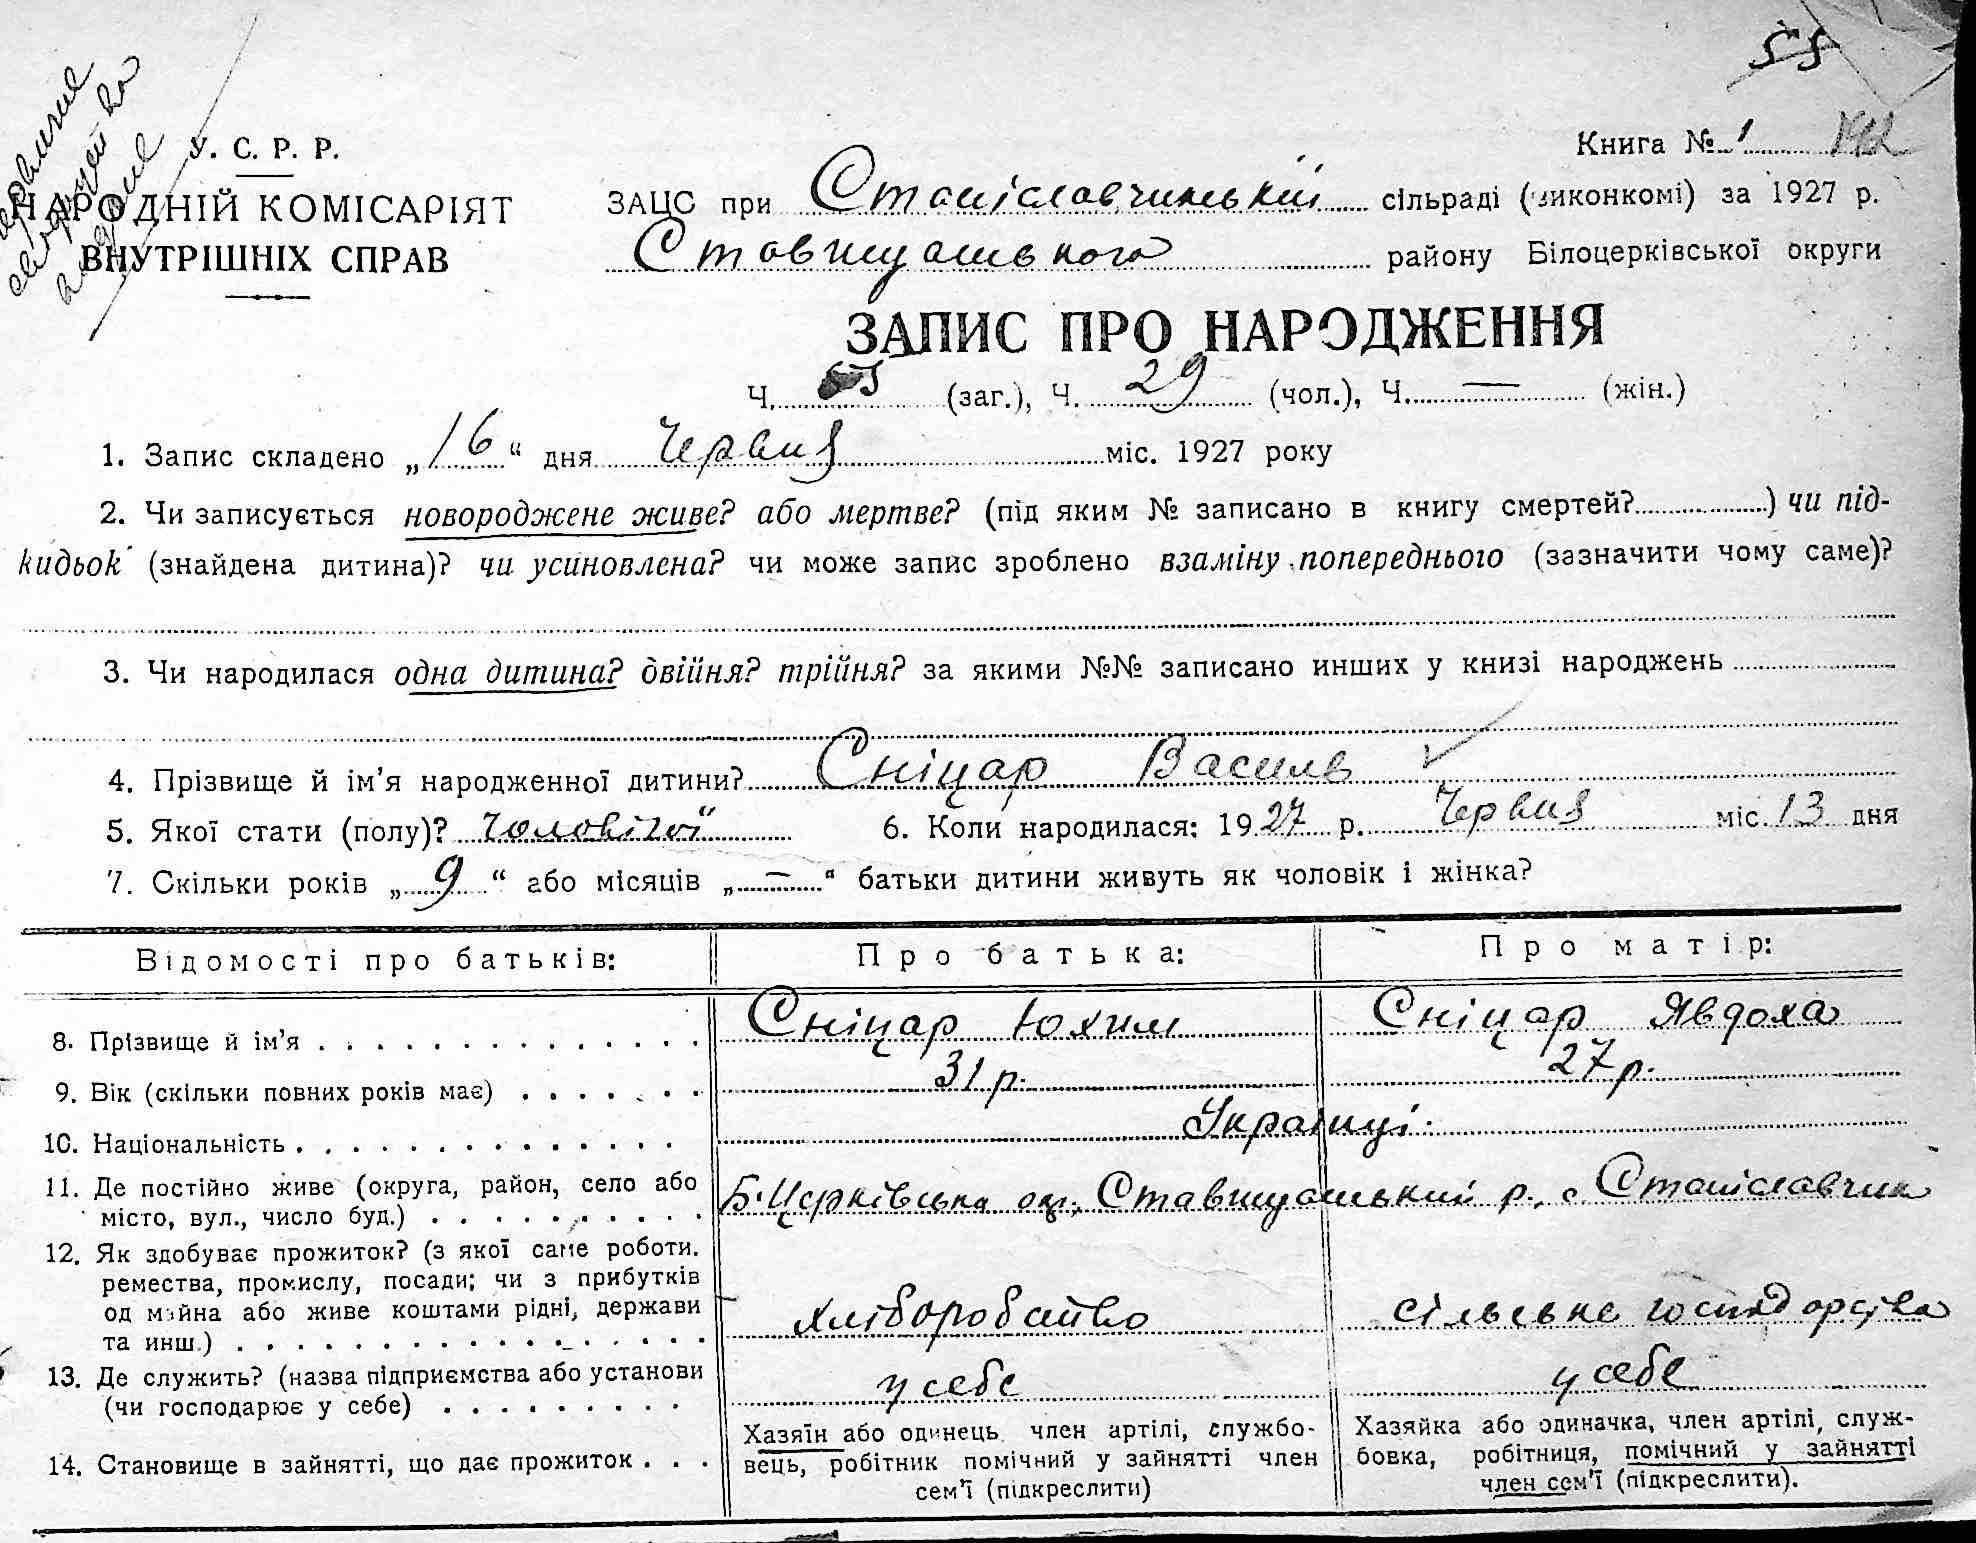 55
У. С. Р. Р.
Книга № 1
НАРОДНІЙ КОМІСАРІЯТ
ВНУТРІШНІХ СПРАВ
ЗАЦС при Станіславчинській сільраді (виконкомі) за 1927 р.
Ставищанського району Білоцерківської округи
ЗАПИС ПРО НАРОДЖЕННЯ
Ч. (заг.), Ч. 29 (чол.), Ч. — (жін.)
1. Запис складено „16“ дня Червня міс. 1927 року
2. Чи записується новороджене живе? або мертве? (під яким № записано в книгу смертей? ) чи під-
кидьок (знайдена дитина)? чи усиновлена? чи може запис зроблено взаміну попереднього (зазначити чому саме)?
3. Чи народилася одна дитина? двійня? трійня? за якими №№ записано инших у книзі народжень
4. Прізвище й ім’я народженної дитини? Сніцар Василь
5. Якої стати (полу)? Чоловічої 6. Коли народилася: 1927 р. Червня міс. 13 дня
7. Скільки років „9“ або місяців „—“ батьки дитини живуть як чоловік і жінка?
Відомості про батьків: Про батька: Про матір:
8. Прізвище й ім’я Сніцар Юхим Сніцар Явдоха
9. Вік (скільки повних років має) 31 р. 27 р.
10. Національність Українці.
11. Де постійно живе (округа, район, село або
місто, вул., число буд.) Б.Церківська ок., Ставищанський р., с Станіславчик
12. Як здобуває прожиток? (з якої саме роботи,
ремества, промислу, посади; чи з прибутків
од майна або живе коштами рідні, держави
та инш.) хліборобство сільське господарства
13. Де служить? (назва підприємства або установи
(чи господарює у себе) у себе у себе
14. Становище в зайнятті, що дає прожиток
Хазяїн або одинець, член артілі, службо-
вець, робітник помічний у зайнятті член
сем’ї (підкреслити)
Хазяйка або одиначка, член артілі, служ-
бовка, робітниця, помічний у зайнятті
член сем’ї (підкреслити).